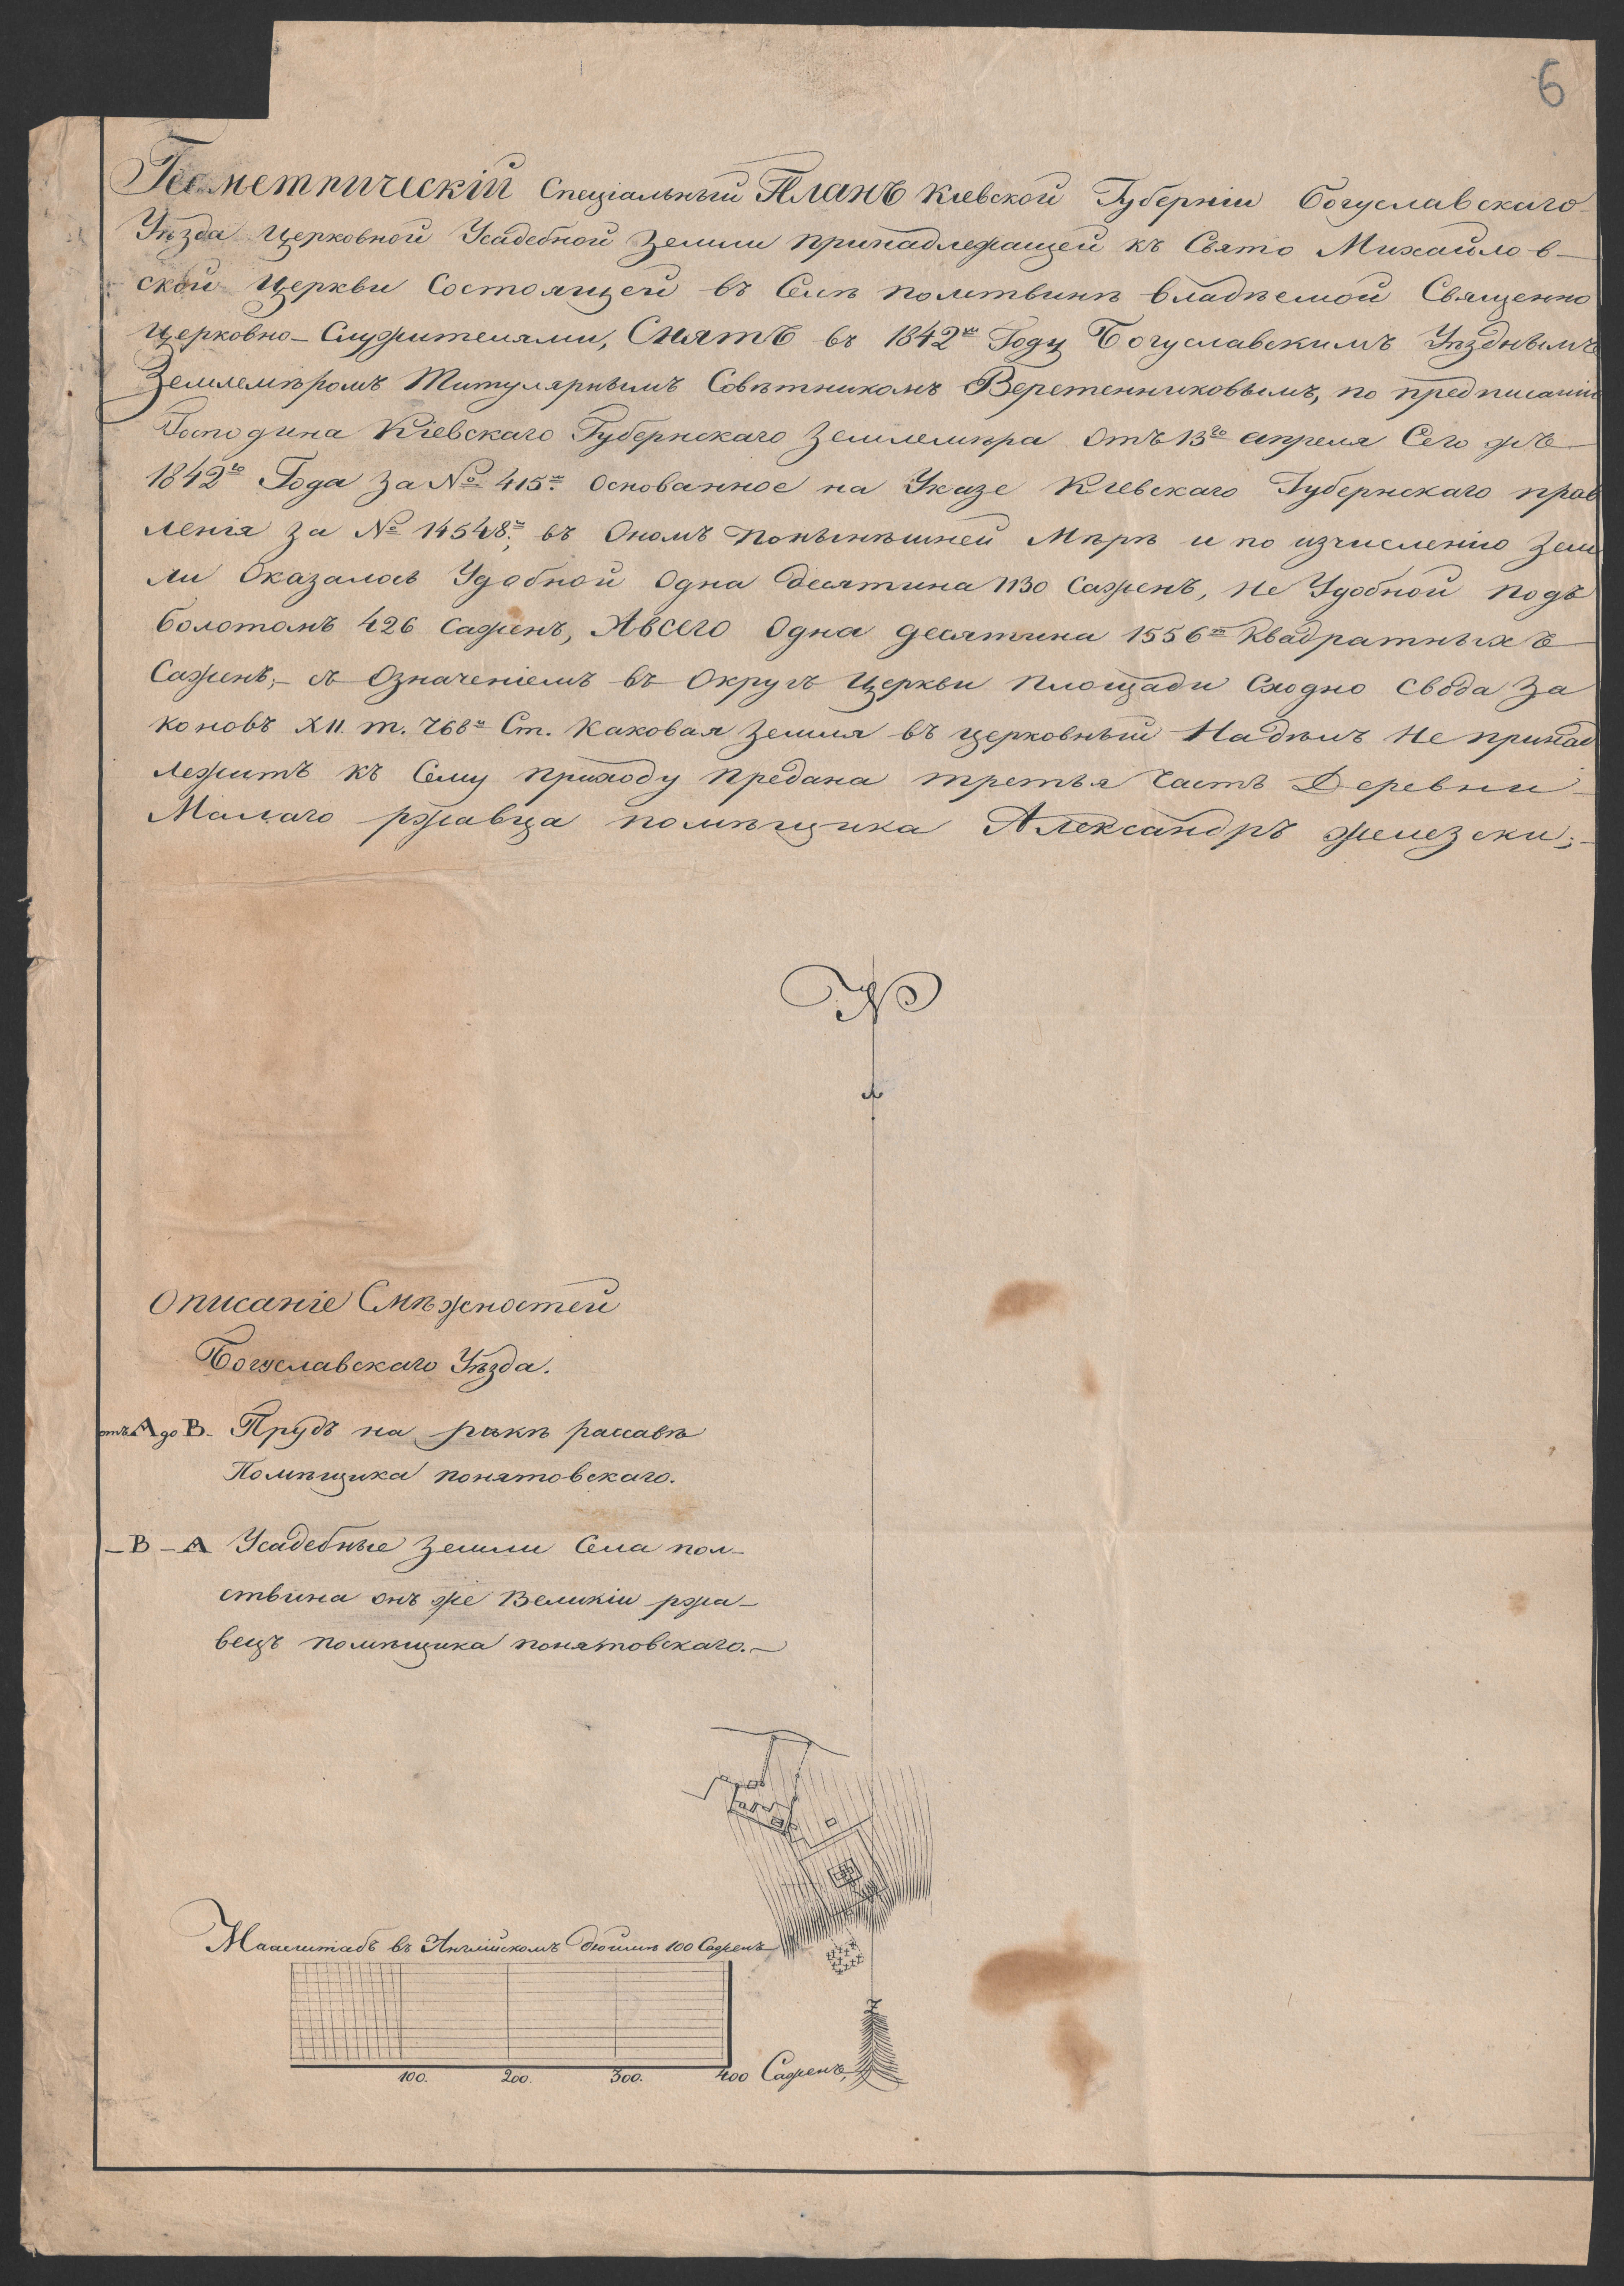 6
Геометрическій Спеціальный Планъ Кіевской Губерніи Богуславскаго
Уѣзда Церковной Усадебной Земли принадлежащей къ Свято Михайлов-
ской Церкви Состоящей въ Селѣ полствинѣ владѣемой Священно
Церковно-Служителями, Снятъ въ 1842мъ Году Богуславскимъ Уѣзднымъ
Землемѣромъ Титулярнымъ Совѣтникомъ Веретенниковымъ, по предписанію
Господина Кіевскаго Губернскаго Землемѣра Отъ 13го апреля Сего же
1842го Года за № 415м. Основанное на Указе Кіевскаго Губернскаго прав
ленія за № 14548м; въ Ономъ По нынѣшней Мѣрѣ и по изчисленію Зем
ли Оказалось Удобной Одна десятина 1130 Саженъ, Не Удобной подъ
болотомъ 426 Саженъ, Авсего Одна десятина 1556ть Квадратныхъ
Саженъ; съ Означеніемъ въ Округъ Церкви Площади Сходно Свода За
коновъ XII. т. 768й Ст. Каковая Земля въ Церковный Надѣлъ Не принад
лежитъ къ Сему приходу предана третья Часть Деревни
Малаго ржавца помѣщика Александръ железски;
N
Описаніе Смѣжностей
Богуславскаго Уѣзда.
отъ А до В. Прудъ на рѣкѣ рассавѣ
Помѣщика понятовскаго.
В - А Усадебные Земли Села пол-
ствина онъ же Великій ржа-
вецъ помѣщика понятовскаго.
Маасштабъ въ Англійскомъ дюймѣ 100 Саженъ
100. 200. 300. 400 Саженъ,
Z